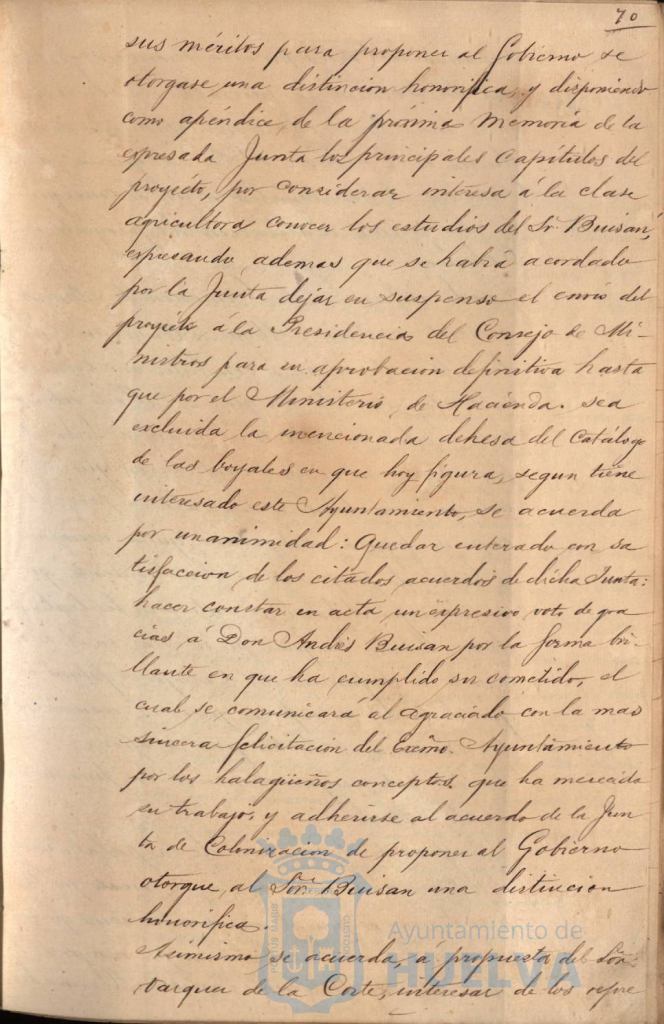 70
sus méritos para proponer al Gobierno se
otorgase una distincion honorifica, y disponiendo
como apéndice, de la próxima Memoria de la
expresada Junta los principales Capítulos del
proyécto, por considerar interesa á la clase
agricultora conocer los estudios del Sr. Buisán,
expresando ademas que se habrá acordado
por la Junta dejar en suspenso el envio del
proyécto á la Presidencia del Consejo de Mi-
nistros para su aprobacion definitiva hasta
que por el Ministerio de Hacienda sea
excluida la mencionada dehesa del Catálogo
de las boyales en que hoy figura, segun tiene
interesado este Ayuntamiento, se acuerda
por unanimidad: Quedar enterado con sa
tisfaccion de los citados acuerdos de dicha Junta:
hacer constar en acta un expresivo voto de gra
cias á Don Andrés Buisan por la forma bri-
llante en que ha cumplido su cometido, el
cual se comunicará al agraciado con la mas
sincera felicitacion del Excmo. Ayuntamiento
por los halagüeños conceptos que ha merecido
su trabajo, y adherirse al acuerdo de la Jun
ta de Colonizacion de proponer al Gobierno
otorgue al Sor. Buisan una distincion
honorifica.
Asimismo se acuerda, á propuesta del Sor.
Vazquez de la Corte, interesar de los refere
PORTUS MARIS CUSTODIA
Ayuntamiento de
HUELVA